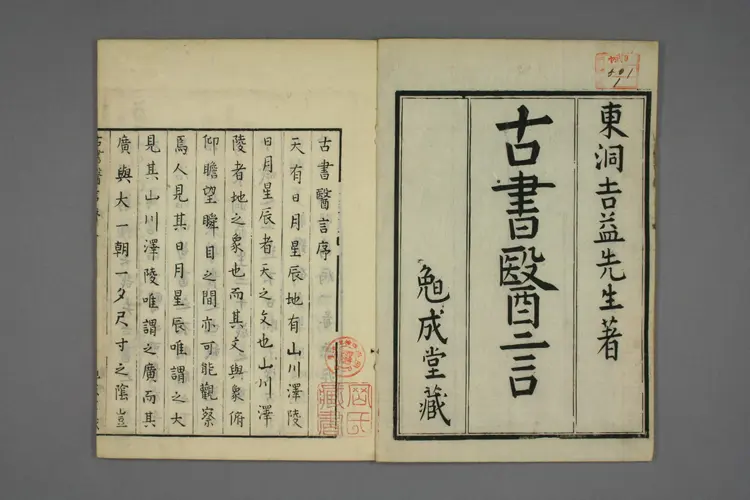 東洞吉益先生著
古書醫言
成堂藏
古書醫言序
天有日月星辰地有山川澤陵
日月星辰者天之文也山川澤
陵者地之象也而其文與象俯
仰瞻望瞬目之間亦可能觀察
焉人見其日月星辰唯謂之大
見其山川澤陵唯謂之廣而其
廣與大一朝一夕尺寸之陰豈
藏書